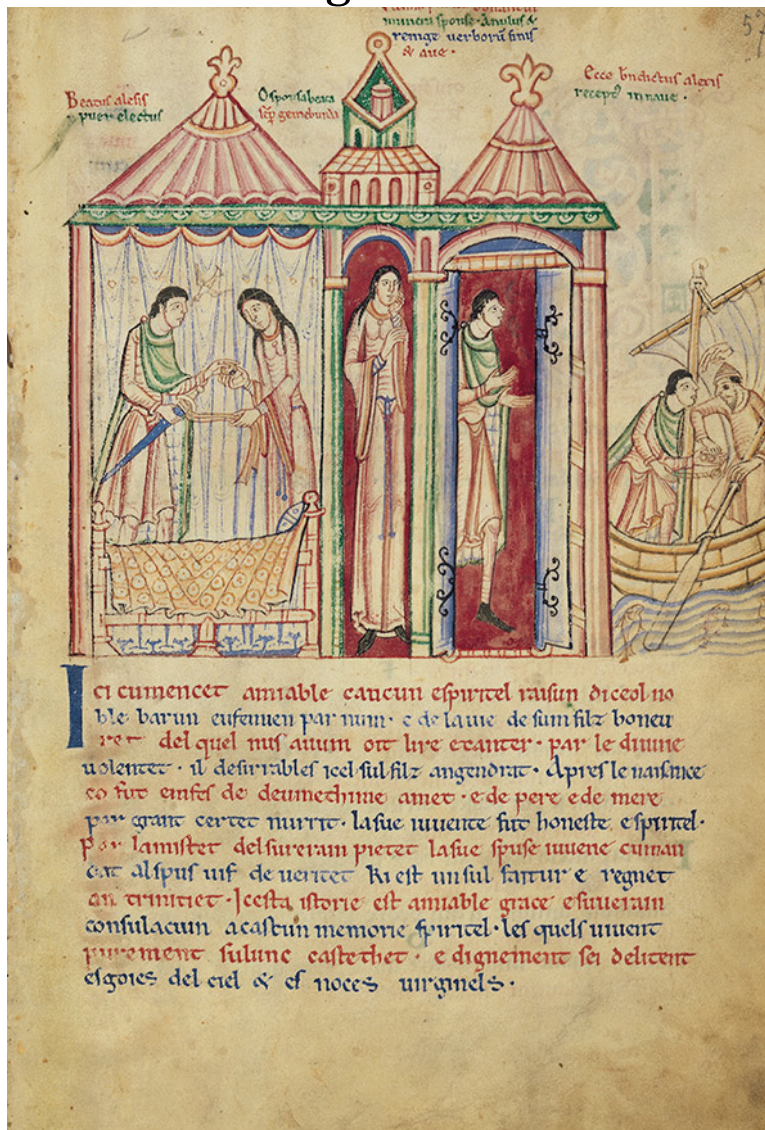 muneri sponse · Anulus &
renge verborū finis
& aue ·
Beatus alexis
puer electus
O sponsa beata
sēp gemebunda
Ecce bn̄dictus alexis
receptꝰ in naue ·
57
Ici cumencet amiable cancun espiritel raisun diceol no
ble barun eufemien par num · e de la uie de sum filz boneu
ret del quel nus auum oit lire e canter · par le diuine
uolentet · il desirrables icel sul filz angendrat · Apres le naisance
co fut emfes de deu methime amet · e de pere e de mere
par grant certet nurrit · la sue iuuente fut honeste e spiritel ·
Par lamistet del surerain pietet la sue spuse iuuene cuman
dat al spus uif de ueritet Ki est un sul faitur e regnet
an trinitiet · Icesta istorie est amiable grace e suuerain
consulaciun a cascun memorie spiritel · les quels uiuent
purement sulunc castethet · e dignement sei delitent
es goies del ciel & es noces uirginels ·